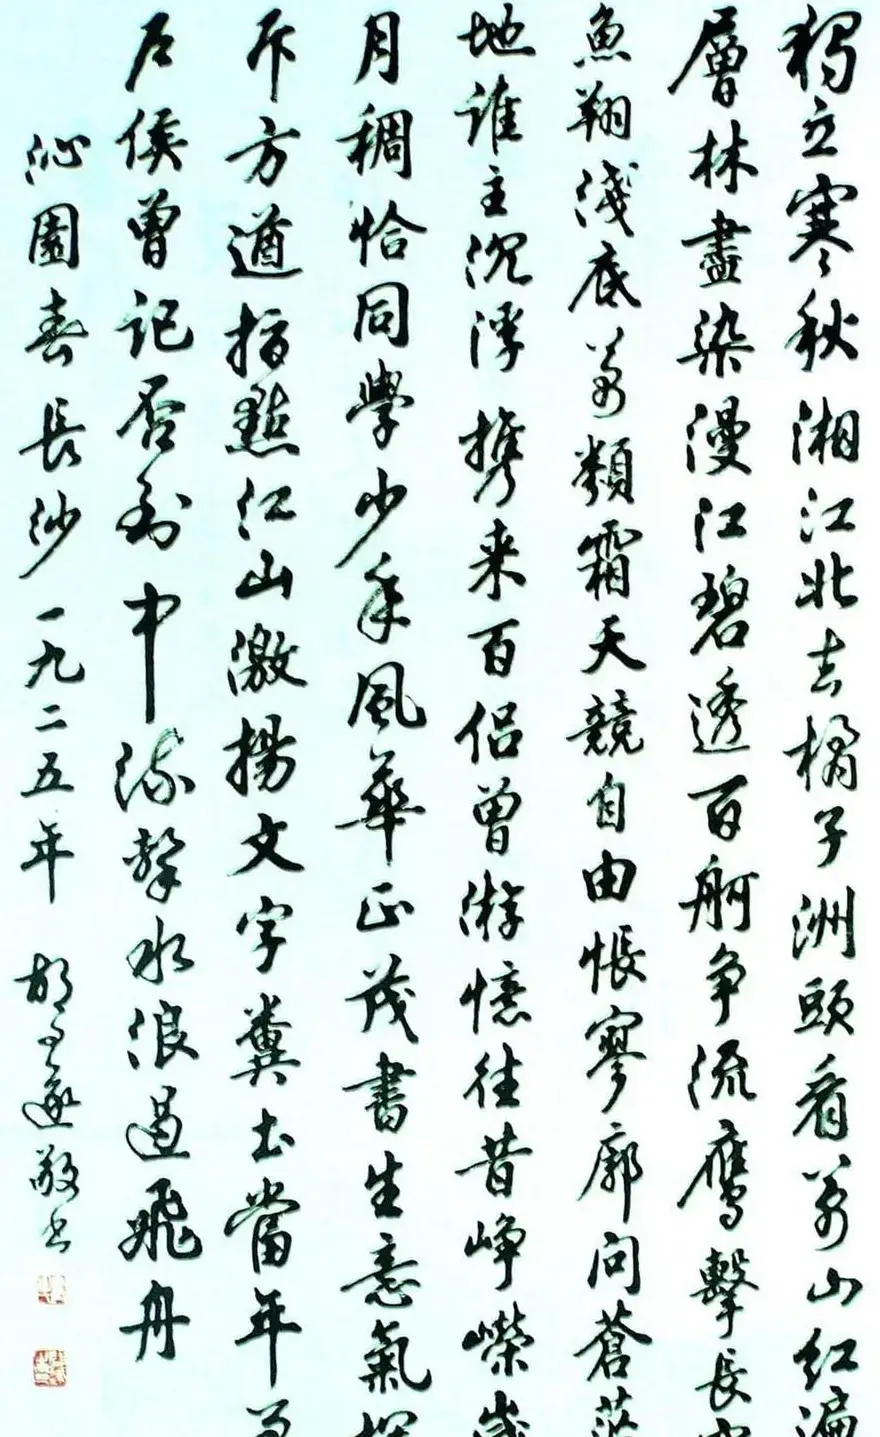 獨立寒秋湘江北去橘子洲頭看萬山紅遍
層林盡染漫江碧透百舸争流鷹擊長空
魚翔淺底萬類霜天競自由悵寥廓問蒼茫
地誰主沉浮携来百侣曾游憶往昔崢嶸歲
月稠恰同學少年風華正茂書生意氣揮
斥方遒指點江山激揚文字糞土當年萬
户侯曾記否到中流擊水浪遏飛舟
沁園春長沙一九二五年 胡問遂敬书